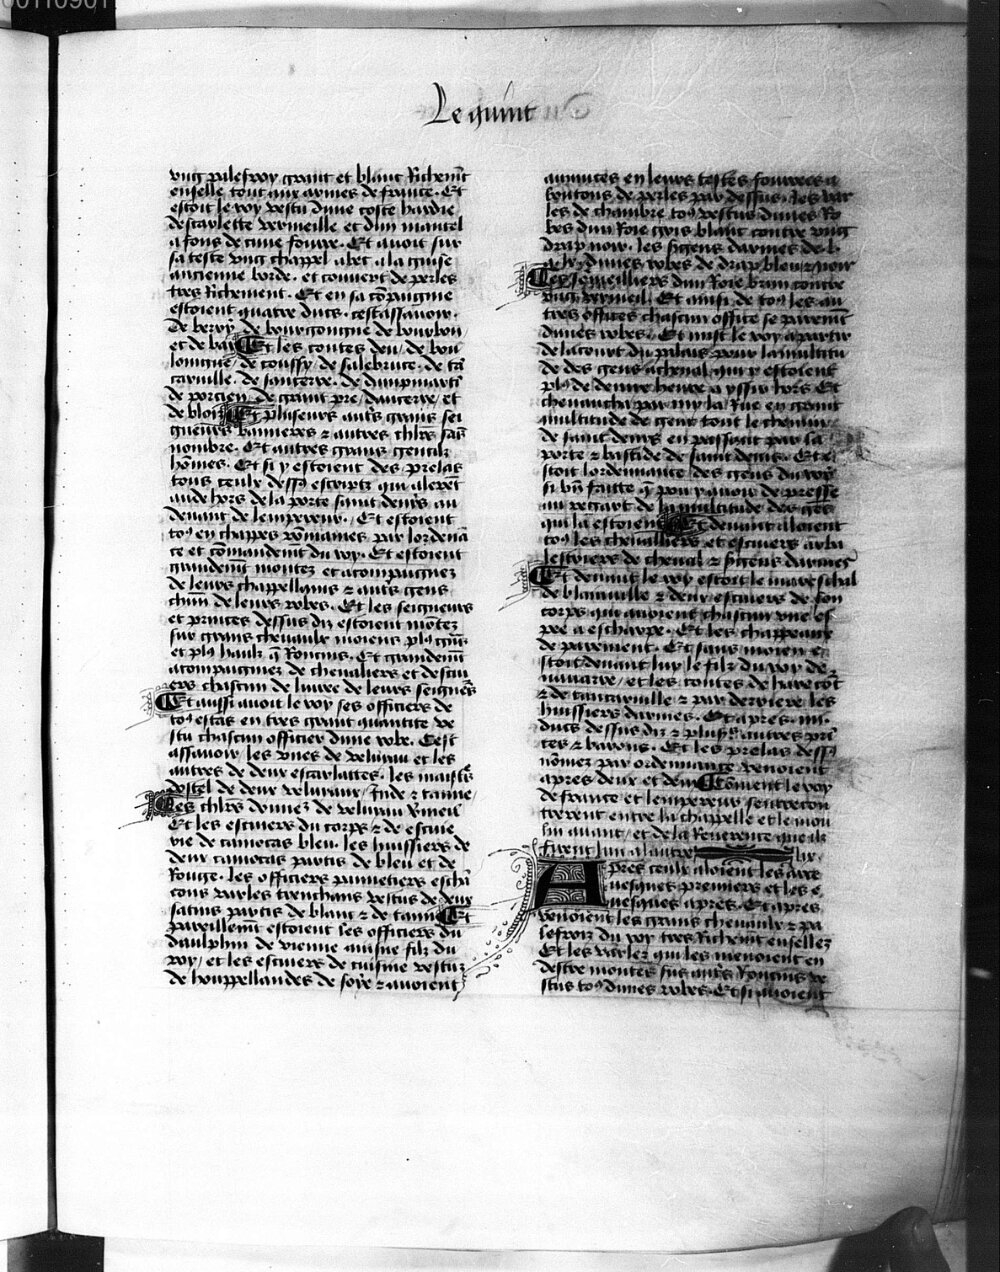 Le quint
vng palefroy grant et blanc Richemt
enselle tout aux armes de france. Et
estoit le roy vestu dune coste hardie
descarlette vermeille et dun mantel
a fons de cuue fourre. Et auoit sur
sa teste vng chappel abec a la guise
ancienne borde. et couuert de perles
tres Richement. Et en sa compaignie
estoient quatre ducs. cestassauoir.
de berry de bourgongne de bourbon
et de bar Et les contes deu. de bou
longne. de coussy. de salebruce. de ta
caruille. de sancerre. de dampmarti
de porcien. de grant pre. dancerre. et
de blois Et pluseurs autrs grans sei
gneurs bannieres & autres chlrs sas
nombre. Et autres grans gentilz
homes. Et si y estoient des prelas
tous ceulx dess escriptz qui aleret
au dehors de la porte saint denys au
deuant de lempereur. Et estoient
to9 en chappes rommaines par lordena
ce et comandemt du roy. Et estoient
grandemt montez et acompaignez
de leurs chappellains & autrs gens
chun de leurs robes. Et les seigneurs
et princes dessus diz estoient motez
sur grans cheuaulx moiens plq gns
et plq haulx q Roncins. Et grandemt
acompaignez de cheualiers et descui
ers chascun de liuree de leurs seignrs
Et aussi auoit le roy ses officiers de
to9 estas en tres grant quantite ve
stu chascun officier dune robe. Cest
assauoir. les vnes de veluiau et les
autres de deux escarlattes. les maistrs
dostel de deux veluiaux. Jnde & tanne.
Les chlrs donnez de veluiau Vmeil
Et les escuiers du corps & de escuie
rie de camocas bleu. les huissiers de
deux camocas partis de bleu et de
Rouge. les officiers pannetiers escha
cons varles trenchans vestus de deux
satins partis de blanc & de tanne Et
pareillemt estoient les officiers du
daulphin de vienne ainsne filz du
roy. et les escuiers de cuisine vestuz
de houppellandes de soye & auoient
aumuces en leurs testes fourrees a
boutons de perles par dessus. les var
les de chambre to9 vestus dunes Ro
bes dun Roie gris blanc contre vng
drap noir. les sigens darmes de
dunes robes de drap bleu & noir
Les someilliers dun Roie brun contre
vng vermeil. Et ainsi de to9 les au
tres offices chascun office se paremt
dunes robes. Et mist le roy a partir
de la court du palais pour la multitu
de des gens a cheual qui y estoient
plq de demie heure a yssir hors Et
cheuaucha par my la Rue en grant
multitude de gent tout le chemin
de saint denys en passant par la
porte & bastide de saint denis. Et e
stoit lordennance des gens du roy
si bn faitte q pou y auoit de presse
au regart de la multitude des ges
qui la estoient Et deuant aloient
to9 les cheualliers et escuiers arba
lestriers de cheual & sigens darmes
Et deuant le roy estoit le mareschal
de blainuille & deux escuiers de son
corps qui auoient chascun vne es
pee a escharpe. Et les chappeaux
de parement. Et sans moien e
stoit deuant luy le filz du roy de
nauarre. et les contes de harecort
& de tancaruille & par derriere les
huissiers darmes. Et apres. iiii.
ducs dessus diz & pluss autres pri
ces & barons. Et les prelas dess
nomez par ordennance venoient
apres deux et deux Coment le roy
de france et lempereur sentrecon
trerent entre la chappelle et le mou
lin auant. et de la Reuerence que ilz
firent lun a lautre
Apres ceulx aloient les arce
uesques premiers et les e
uesques apres. Et apres
venoient les grans cheuaulx & pa
lefrois du roy tres Richemt ensellez
Et les varlez qui les menoient en
destre montes sus autrs Roncins ve
stus to9 dunes robes. Et si auoient